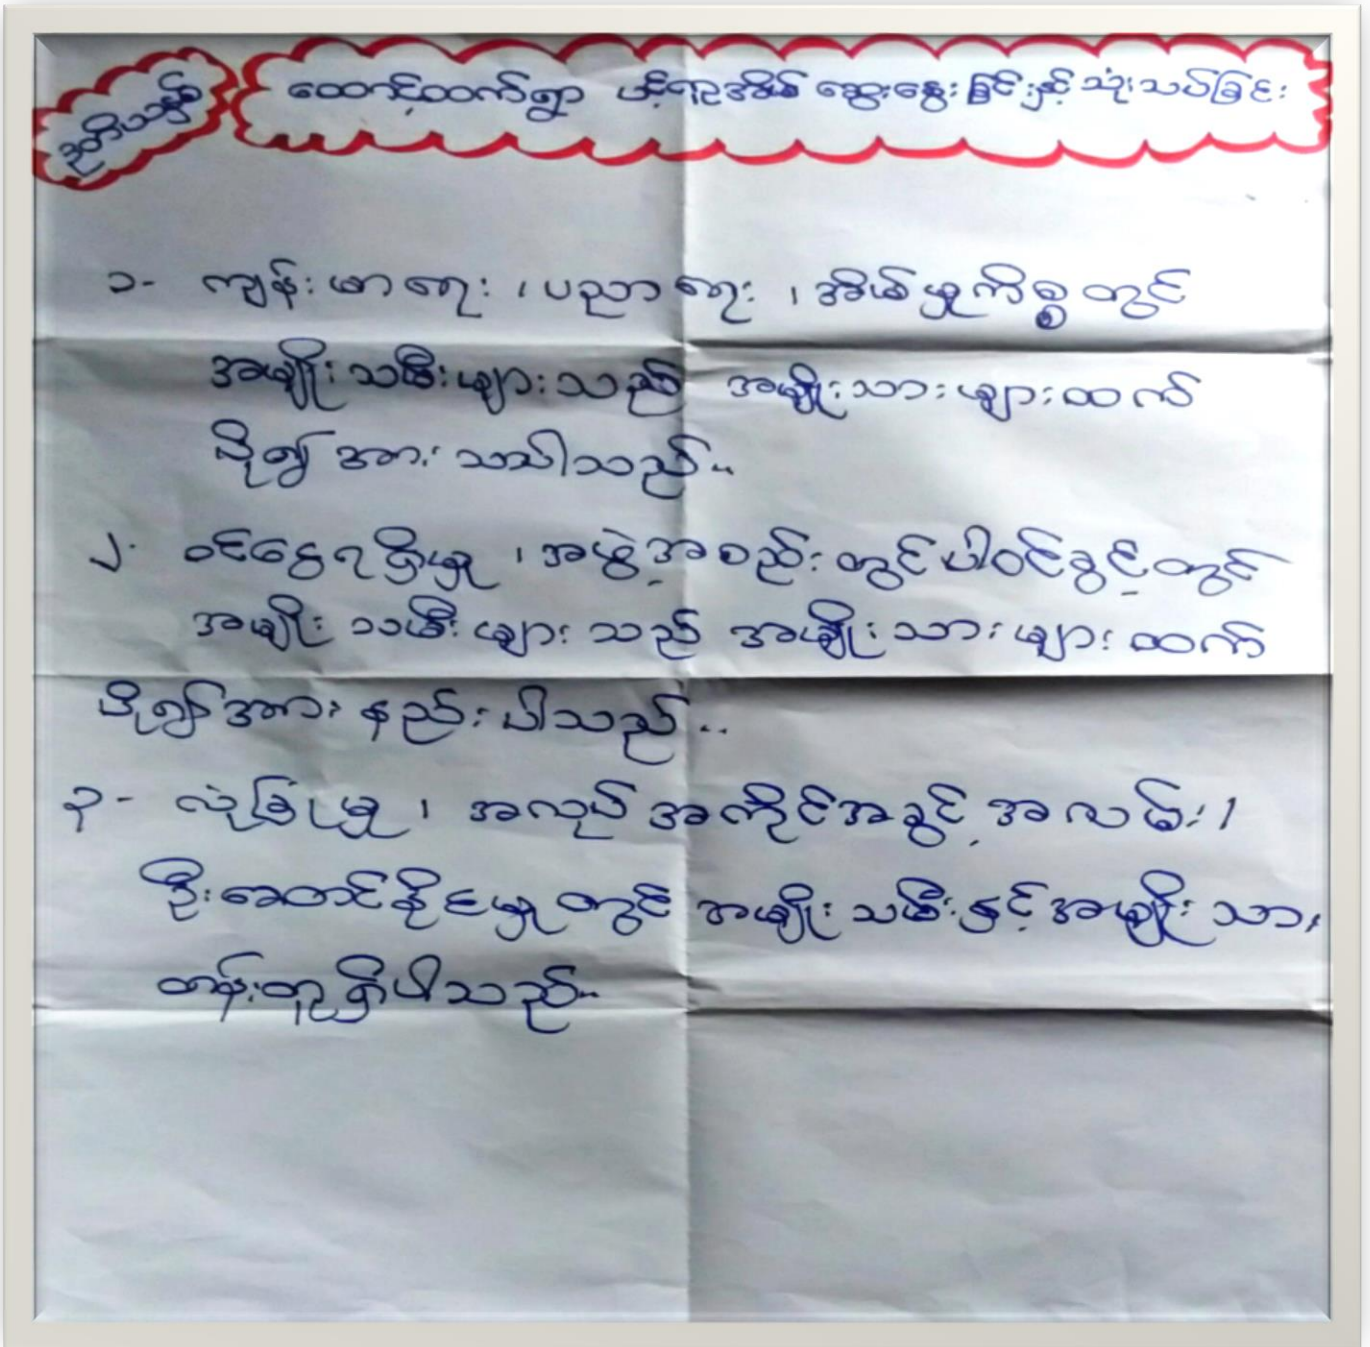 ဒုတိယနှစ်
ထောင့်ထက်ရွာ ပင့်ကူအိမ် ဆွေးနွေးခြင်းနှင့် သုံးသပ်ခြင်း
၁- ကျန်းမာရေး ၊ ပညာရေး ၊ အိမ်မှုကိစ္စတွင်
အမျိုးသမီးများသည် အမျိုးသားများထက်
ပို၍ အားသာပါသည်။
၂- ဝင်ငွေရရှိမှု ၊ အဖွဲ့အစည်းတွင်ပါဝင်ခွင့်တွင်
အမျိုးသမီးများသည် အမျိုးသားများထက်
ပို၍အားနည်းပါသည်။
၃- လုံခြုံမှု ၊ အလုပ်အကိုင်အခွင့်အလမ်း ၊
ဦးဆောင်နိုင်မှုတွင် အမျိုးသမီးနှင့်အမျိုးသား
တန်းတူရှိပါသည်။